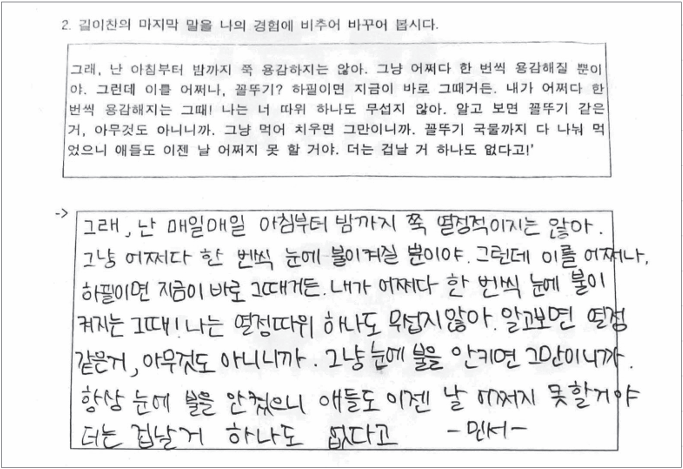 2. 길이찬의 마지막 말을 나의 경험에 비추어 바꾸어 봅시다.
그래, 난 아침부터 밤까지 쭉 용감하지는 않아. 그냥 어쩌다 한 번씩 용감해질 뿐이
야. 그런데 이를 어쩌나, 꼴뚜기? 하필이면 지금이 바로 그때거든. 내가 어쩌다 한
번씩 용감해지는 그때! 나는 너 따위 하나도 무섭지 않아. 알고 보면 꼴뚜기 같은
거, 아무것도 아니니까. 그냥 먹어 치우면 그만이니까. 꼴뚜기 국물까지 다 나눠 먹
었으니 애들도 이젠 날 어쩌지 못 할 거야. 더는 겁날 거 하나도 없다고!'
->
그래, 난 매일매일 아침부터 밤까지 쭉 열정적이지는 않아.
그냥 어쩌다 한 번씩 눈에 불이켜질 뿐이야. 그런데 이를 어쩌나,
하필이면 지금이 바로 그때거든. 내가 어쩌다 한 번씩 눈에 불이
켜지는 그때! 나는 열정따위 하나도 무섭지않아. 알고보면 열정
같은거, 아무것도 아니니까. 그냥 눈에 불을 안키면 그만이니까.
항상 눈에 불을 안켰으니 애들도 이젠 날 어쩌지 못할거야
더는 겁날거 하나도 없다고 -민서-